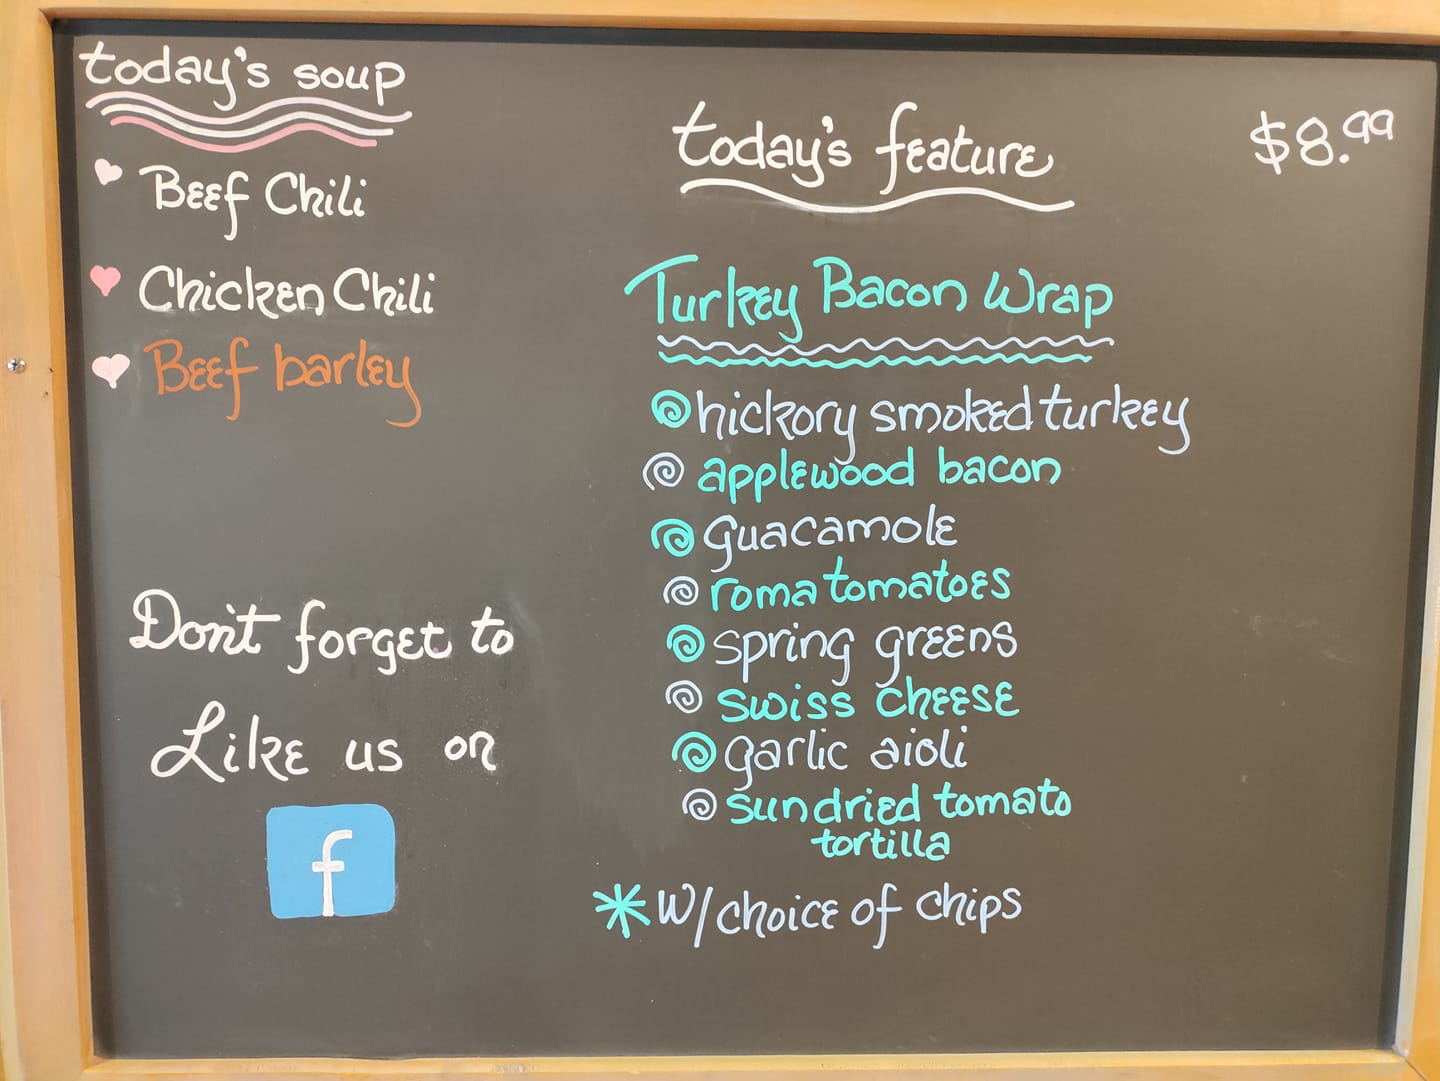 today's soup
Beef Chili
Chicken Chili
Beef barley
Don't forget to
Like us on
f
today's feature
$8.99
Turkey Bacon Wrap
hickory smoked turkey
applewood bacon
guacamole
roma tomatoes
spring greens
swiss cheese
garlic aioli
sundried tomato
tortilla
* w/choice of chips